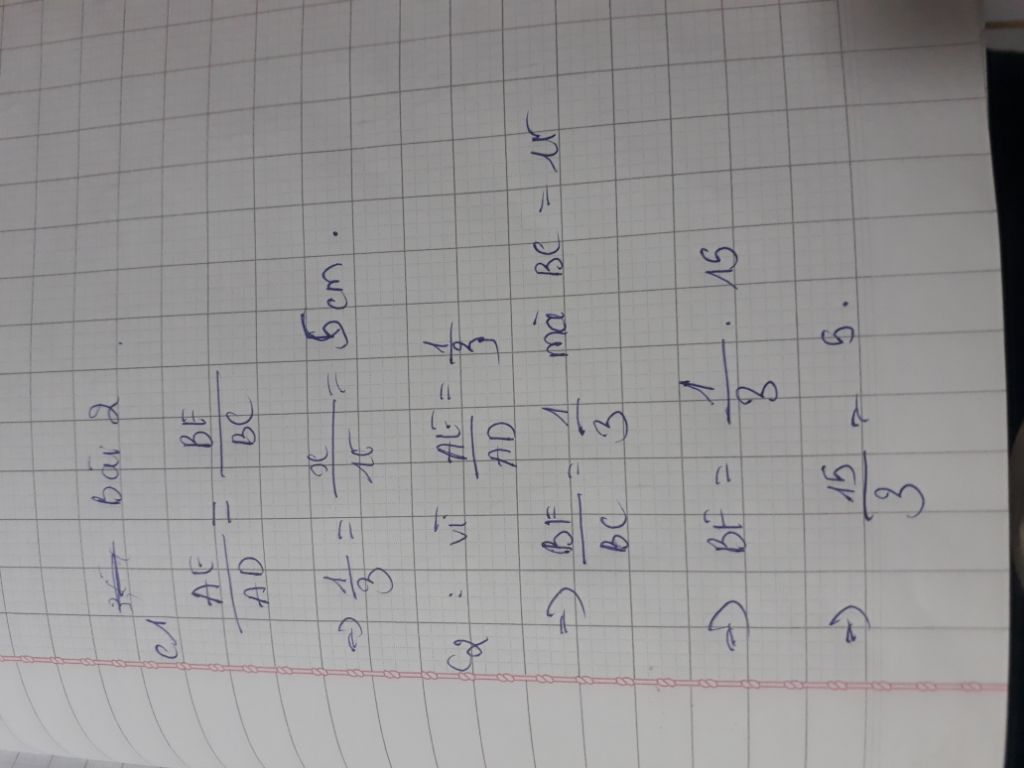 bài 2
C1
AE/AD = BF/BC
=> 1/3 = x/15 = 5 cm.
C2 : vì AE/AD = 1/3
=> BF/BC = 1/3 mà BC = 15
=> BF = 1/3 . 15
=> 15/3 = 5.